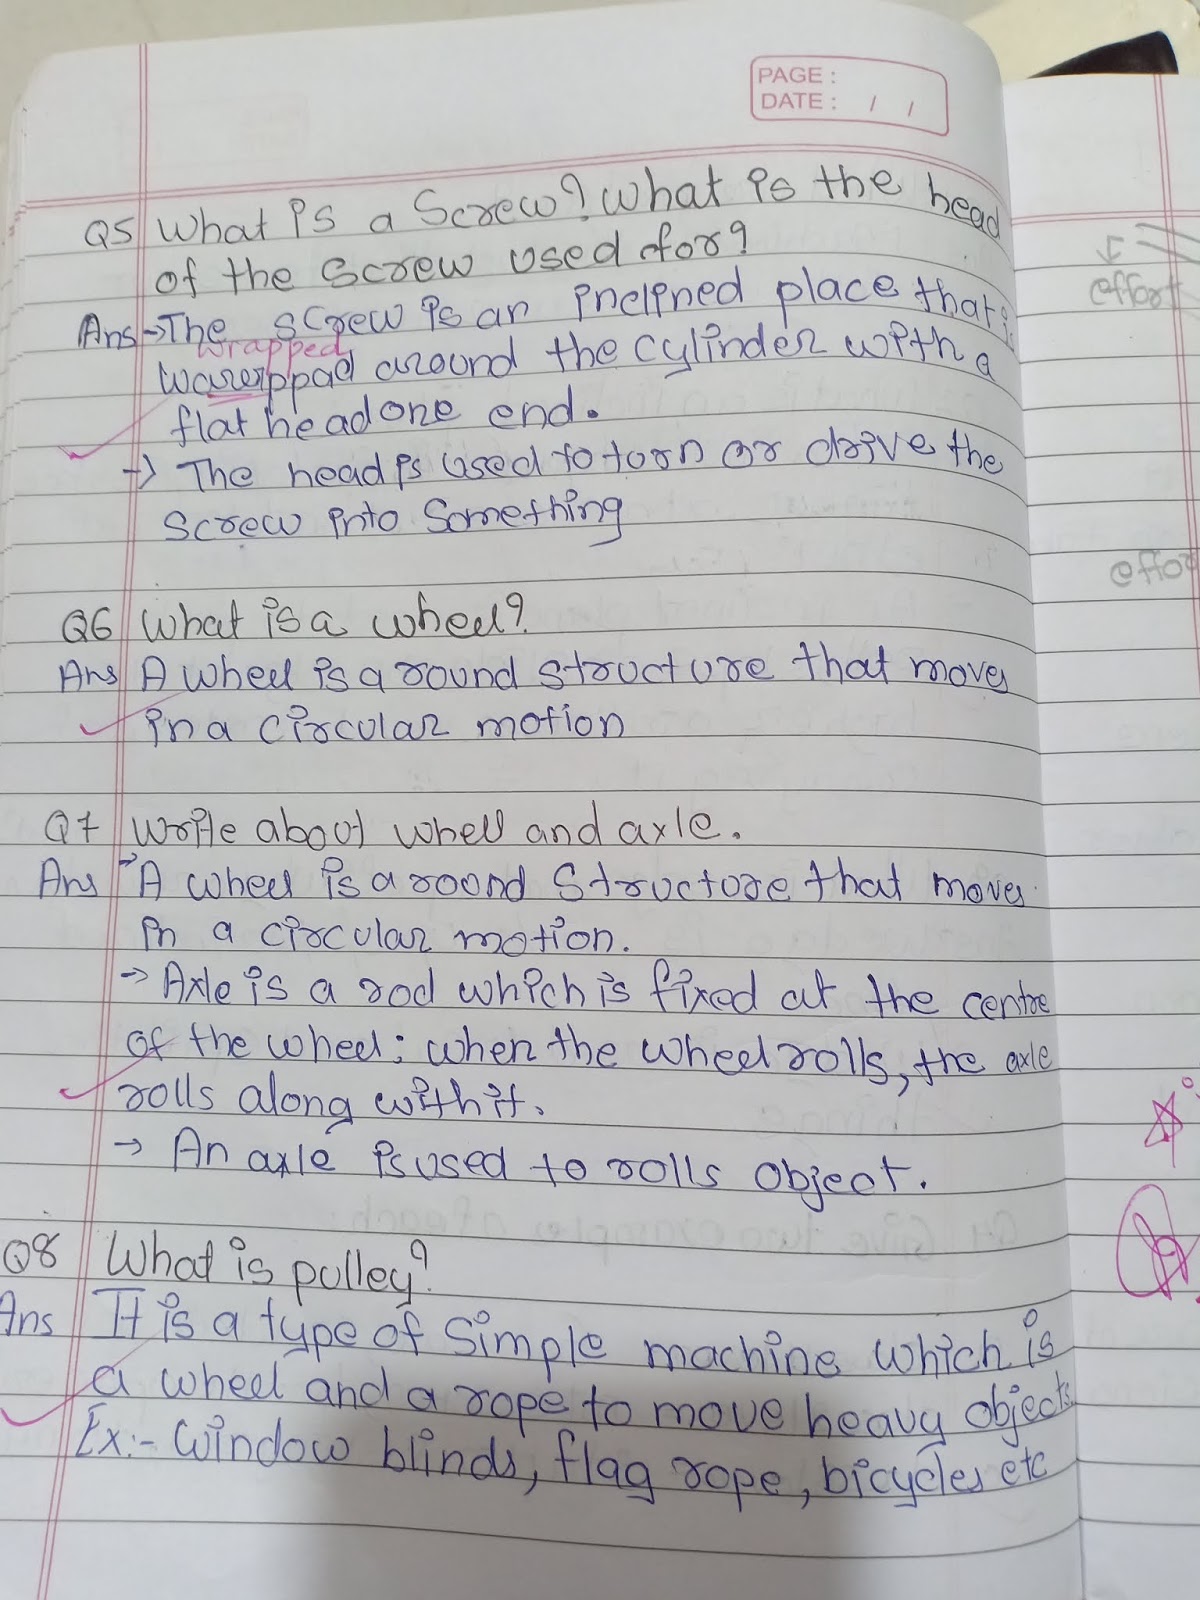 PAGE :
DATE : / /
Q5 What is a Screw? What is the head
of the screw used for?
Ans → The screw is an inclined place that is
wrapped
warerppad around the cylinder with a
flat head one end.
→ The head is used to turn or drive the
Screw into Something
Q6 What is a wheel?
Ans A wheel is a round structure that moves
in a circular motion
Q7 Write about whell and axle.
Ans → A wheel is a round Structure that moves
in a circular motion.
→ Axle is a rod which is fixed at the centre
of the wheel; when the wheel rolls, the axle
rolls along with it.
→ An axle is used to rolls object.
Q8 What is pulley?
Ans It is a type of Simple machine which is
a wheel and a rope to move heavy objects
Ex:- Window blinds, flag rope, bicycles etc
effort